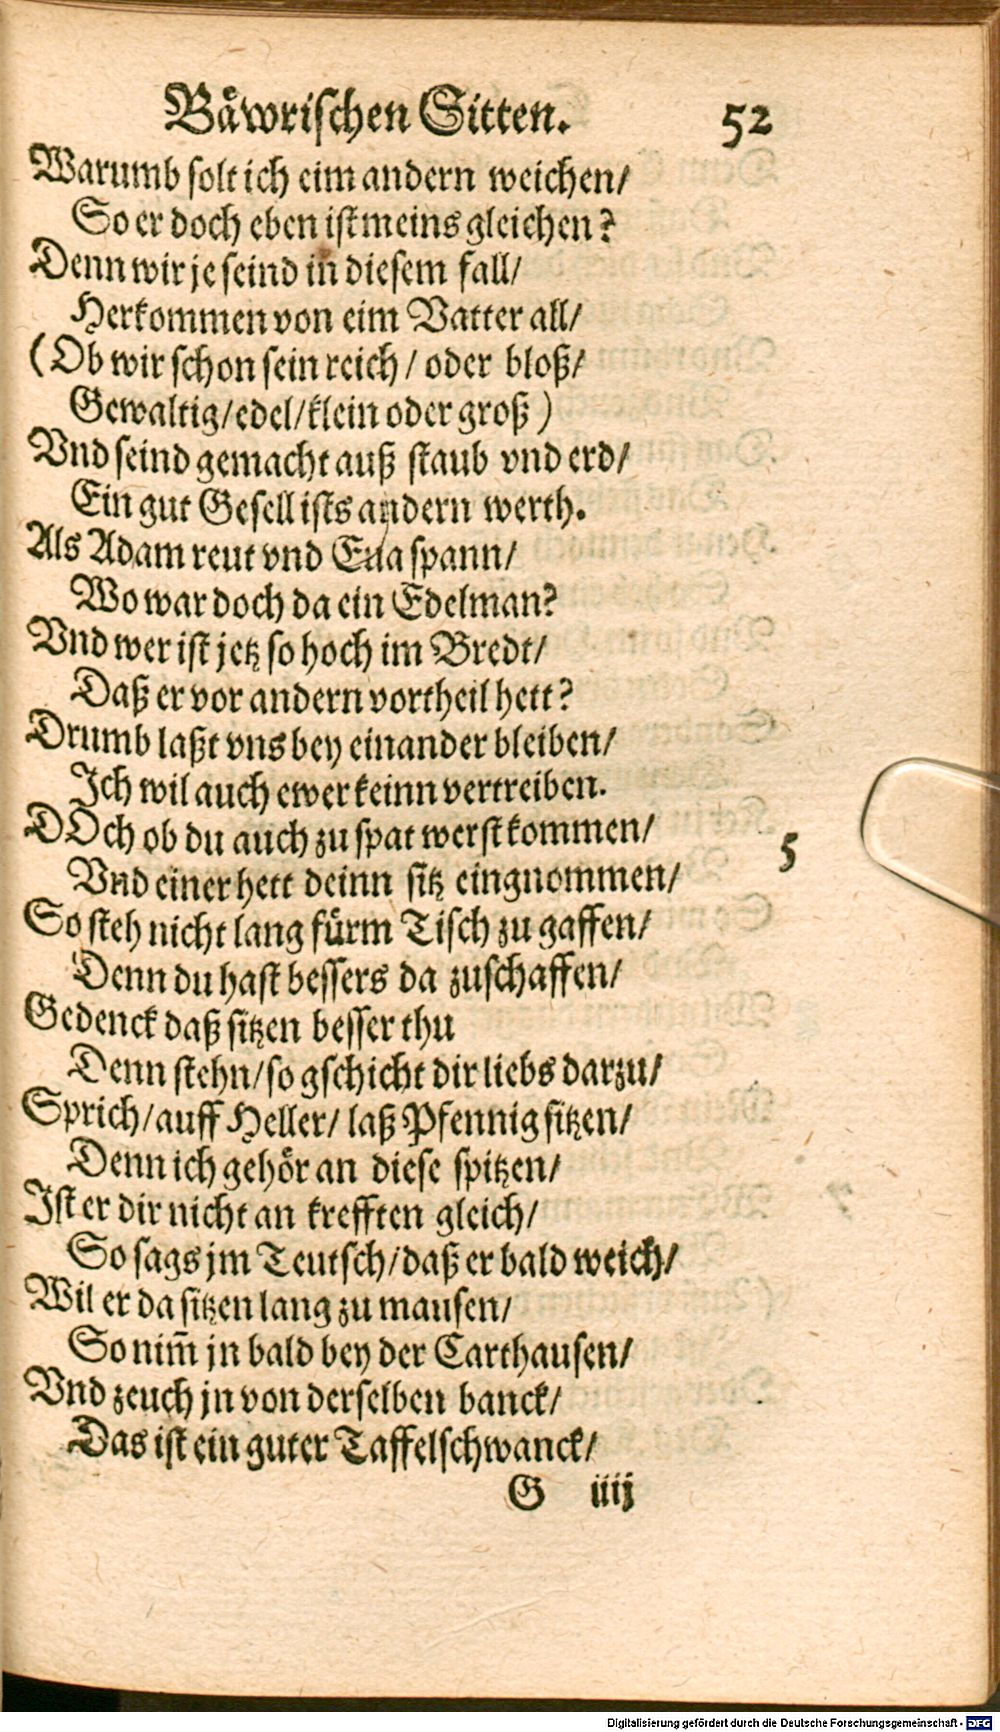 Båwrischen Sitten. 52
Warumb solt ich eim andern weichen/
So er doch eben ist meins gleichen?
Denn wir je seind in diesem fall/
Herkommen von eim Vatter all/
(Ob wir schon sein reich / oder bloß/
Gewaltig/edel/klein oder groß)
Vnd seind gemacht auß staub vnd erd/
Ein gut Gesell ists andern werth.
Als Adam reut vnd Eua spann/
Wo war doch da ein Edelman?
Vnd wer ist jetz so hoch im Bredt/
Daß er vor andern vortheil hett?
Drumb laßt vns bey einander bleiben/
Ich wil auch ewer keinn vertreiben.
DOch ob du auch zu spat werst kommen/ 5
Vnd einer hett deinn sitz eingnommen/
So steh nicht lang fürm Tisch zu gaffen/
Denn du hast bessers da zuschaffen/
Gedenck daß sitzen besser thu
Denn stehn/so gschicht dir liebs darzu/
Sprich/auff Heller/ laß Pfennig sitzen/
Denn ich gehör an diese spitzen/
Ist er dir nicht an krefften gleich/
So sags jm Teutsch/daß er bald weich/
Wil er da sitzen lang zu mausen/
So nim̃ jn bald bey der Carthausen/
Vnd zeuch jn von derselben banck/
Das ist ein guter Taffelschwanck/
G iiij
Digitalisierung gefördert durch die Deutsche Forschungsgemeinschaft - DFG